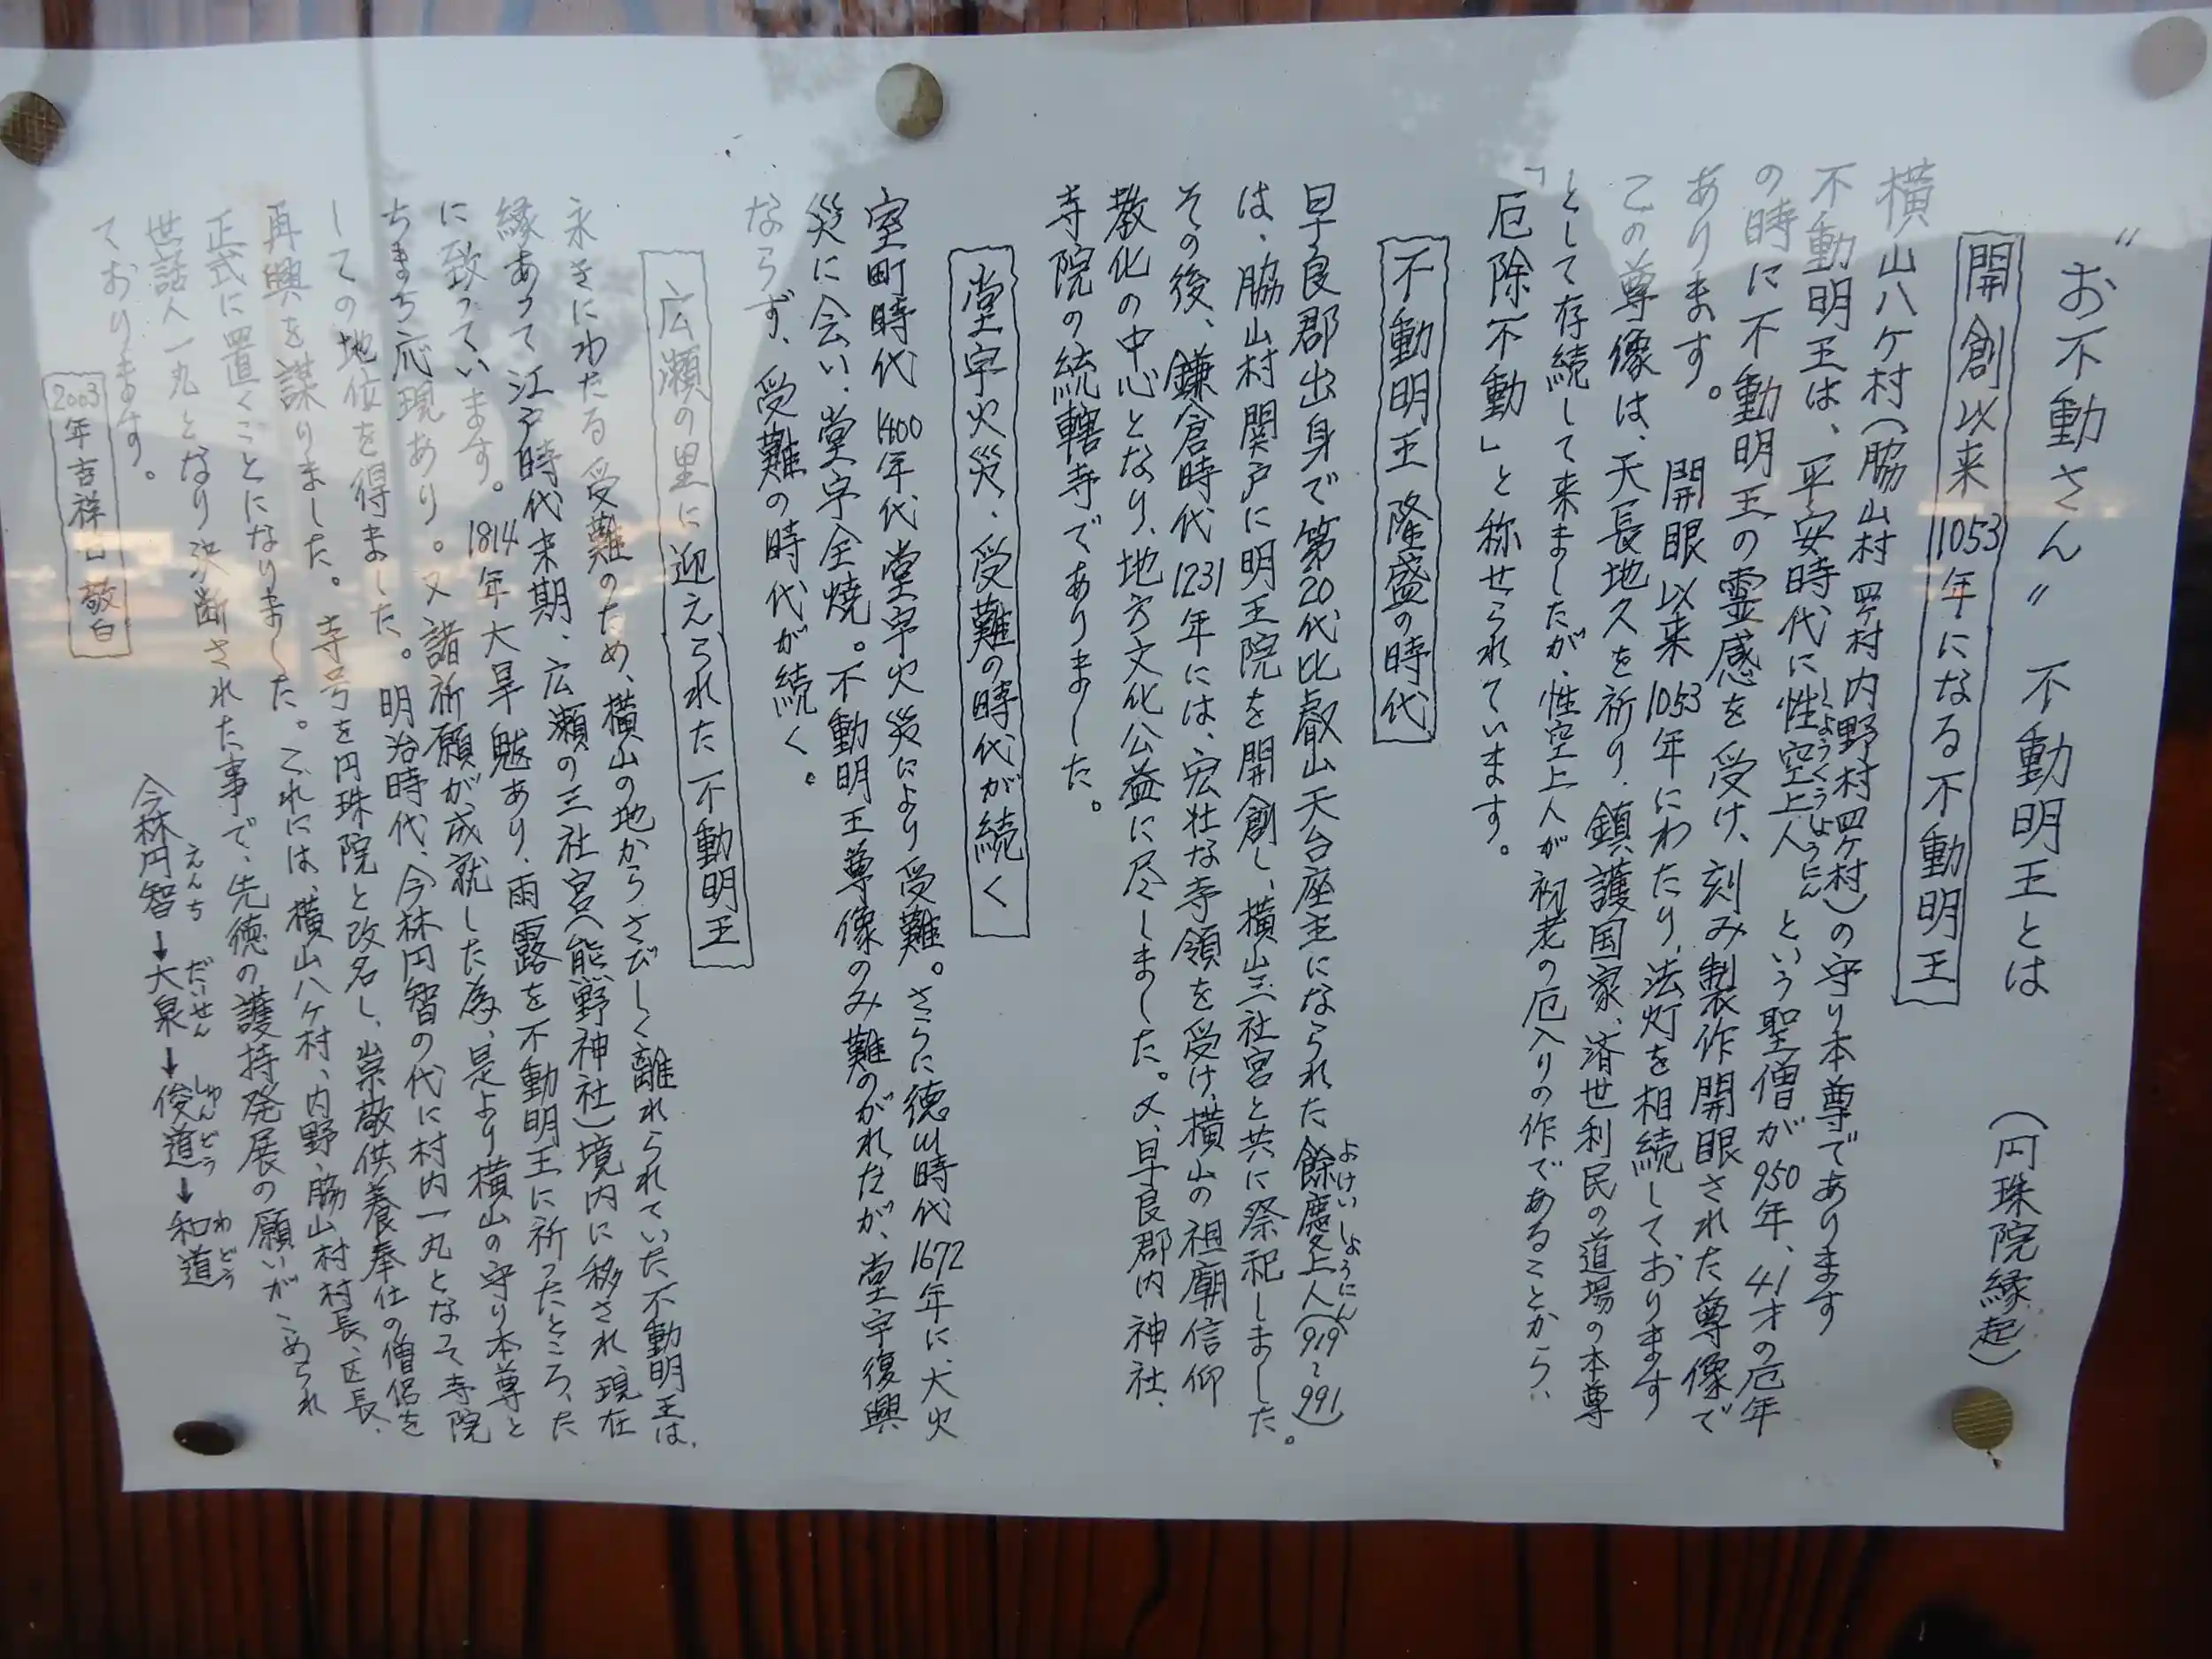 "お不動さん" 不動明王とは (円珠院縁起)
開創以来1053年になる不動明王
横山八ヶ村(脇山村四ヶ村 内野村四ヶ村)の守り本尊であります
不動明王は、平安時代に性空上人という聖僧が950年、41才の厄年
しょうくうしょうにん
の時に不動明王の霊感を受け、刻み製作開眼された尊像で
あります。 開眼以来1053年にわたり、法灯を相続しております
この尊像は、天長地久を祈り、鎮護国家、済世利民の道場の本尊
として存続して来ましたが、性空上人が初老の厄入りの作であることから、
「厄除不動」と称せられています。
不動明王隆盛の時代
早良郡出身で第20代比叡山天台座主になられた餘慶上人(919~991)
よけいしょうにん
は、脇山村関戸に明王院を開創し、横山三社宮と共に祭祀しました。
その後、鎌倉時代1231年には、宏壮な寺領を受け、横山の祖廟信仰
教化の中心となり、地方文化公益に尽しました。又、早良郡内神社、
寺院の統轄寺でありました。
堂宇火災、受難の時代が続く
室町時代1400年代堂宇火災により受難。さらに徳川時代1672年に大火
災に会い、堂宇全焼。不動明王尊像のみ難のがれたが、堂宇復興
ならず、受難の時代が続く。
広瀬の里に迎えられた不動明王
永きにわたる受難のため、横山の地からさびしく離れられていた不動明王は、
縁あって江戸時代末期、広瀬の三社宮(能野神社)境内に移され、現在
に致っています。1814年大旱魃あり、雨露を不動明王に祈ったところ、た
ちまち応現あり。又諸祈願が成就した為、是より横山の守り本尊と
しての地位を得ました。明治時代、今林円智の代に村内一丸となって、寺院
再興を謀りました。寺号を円珠院と改名し、崇敬供養奉仕の僧侶を
正式に置くことになりました。これには、横山八ヶ村、内野、脇山村村長、区長、
世話人一丸となり決断された事で、先徳の護持発展の願いがこめられ
ております。
今林円智→大泉→俊道→和道
えんち だいせん しゅんどう わどう
2003年吉祥日 敬白